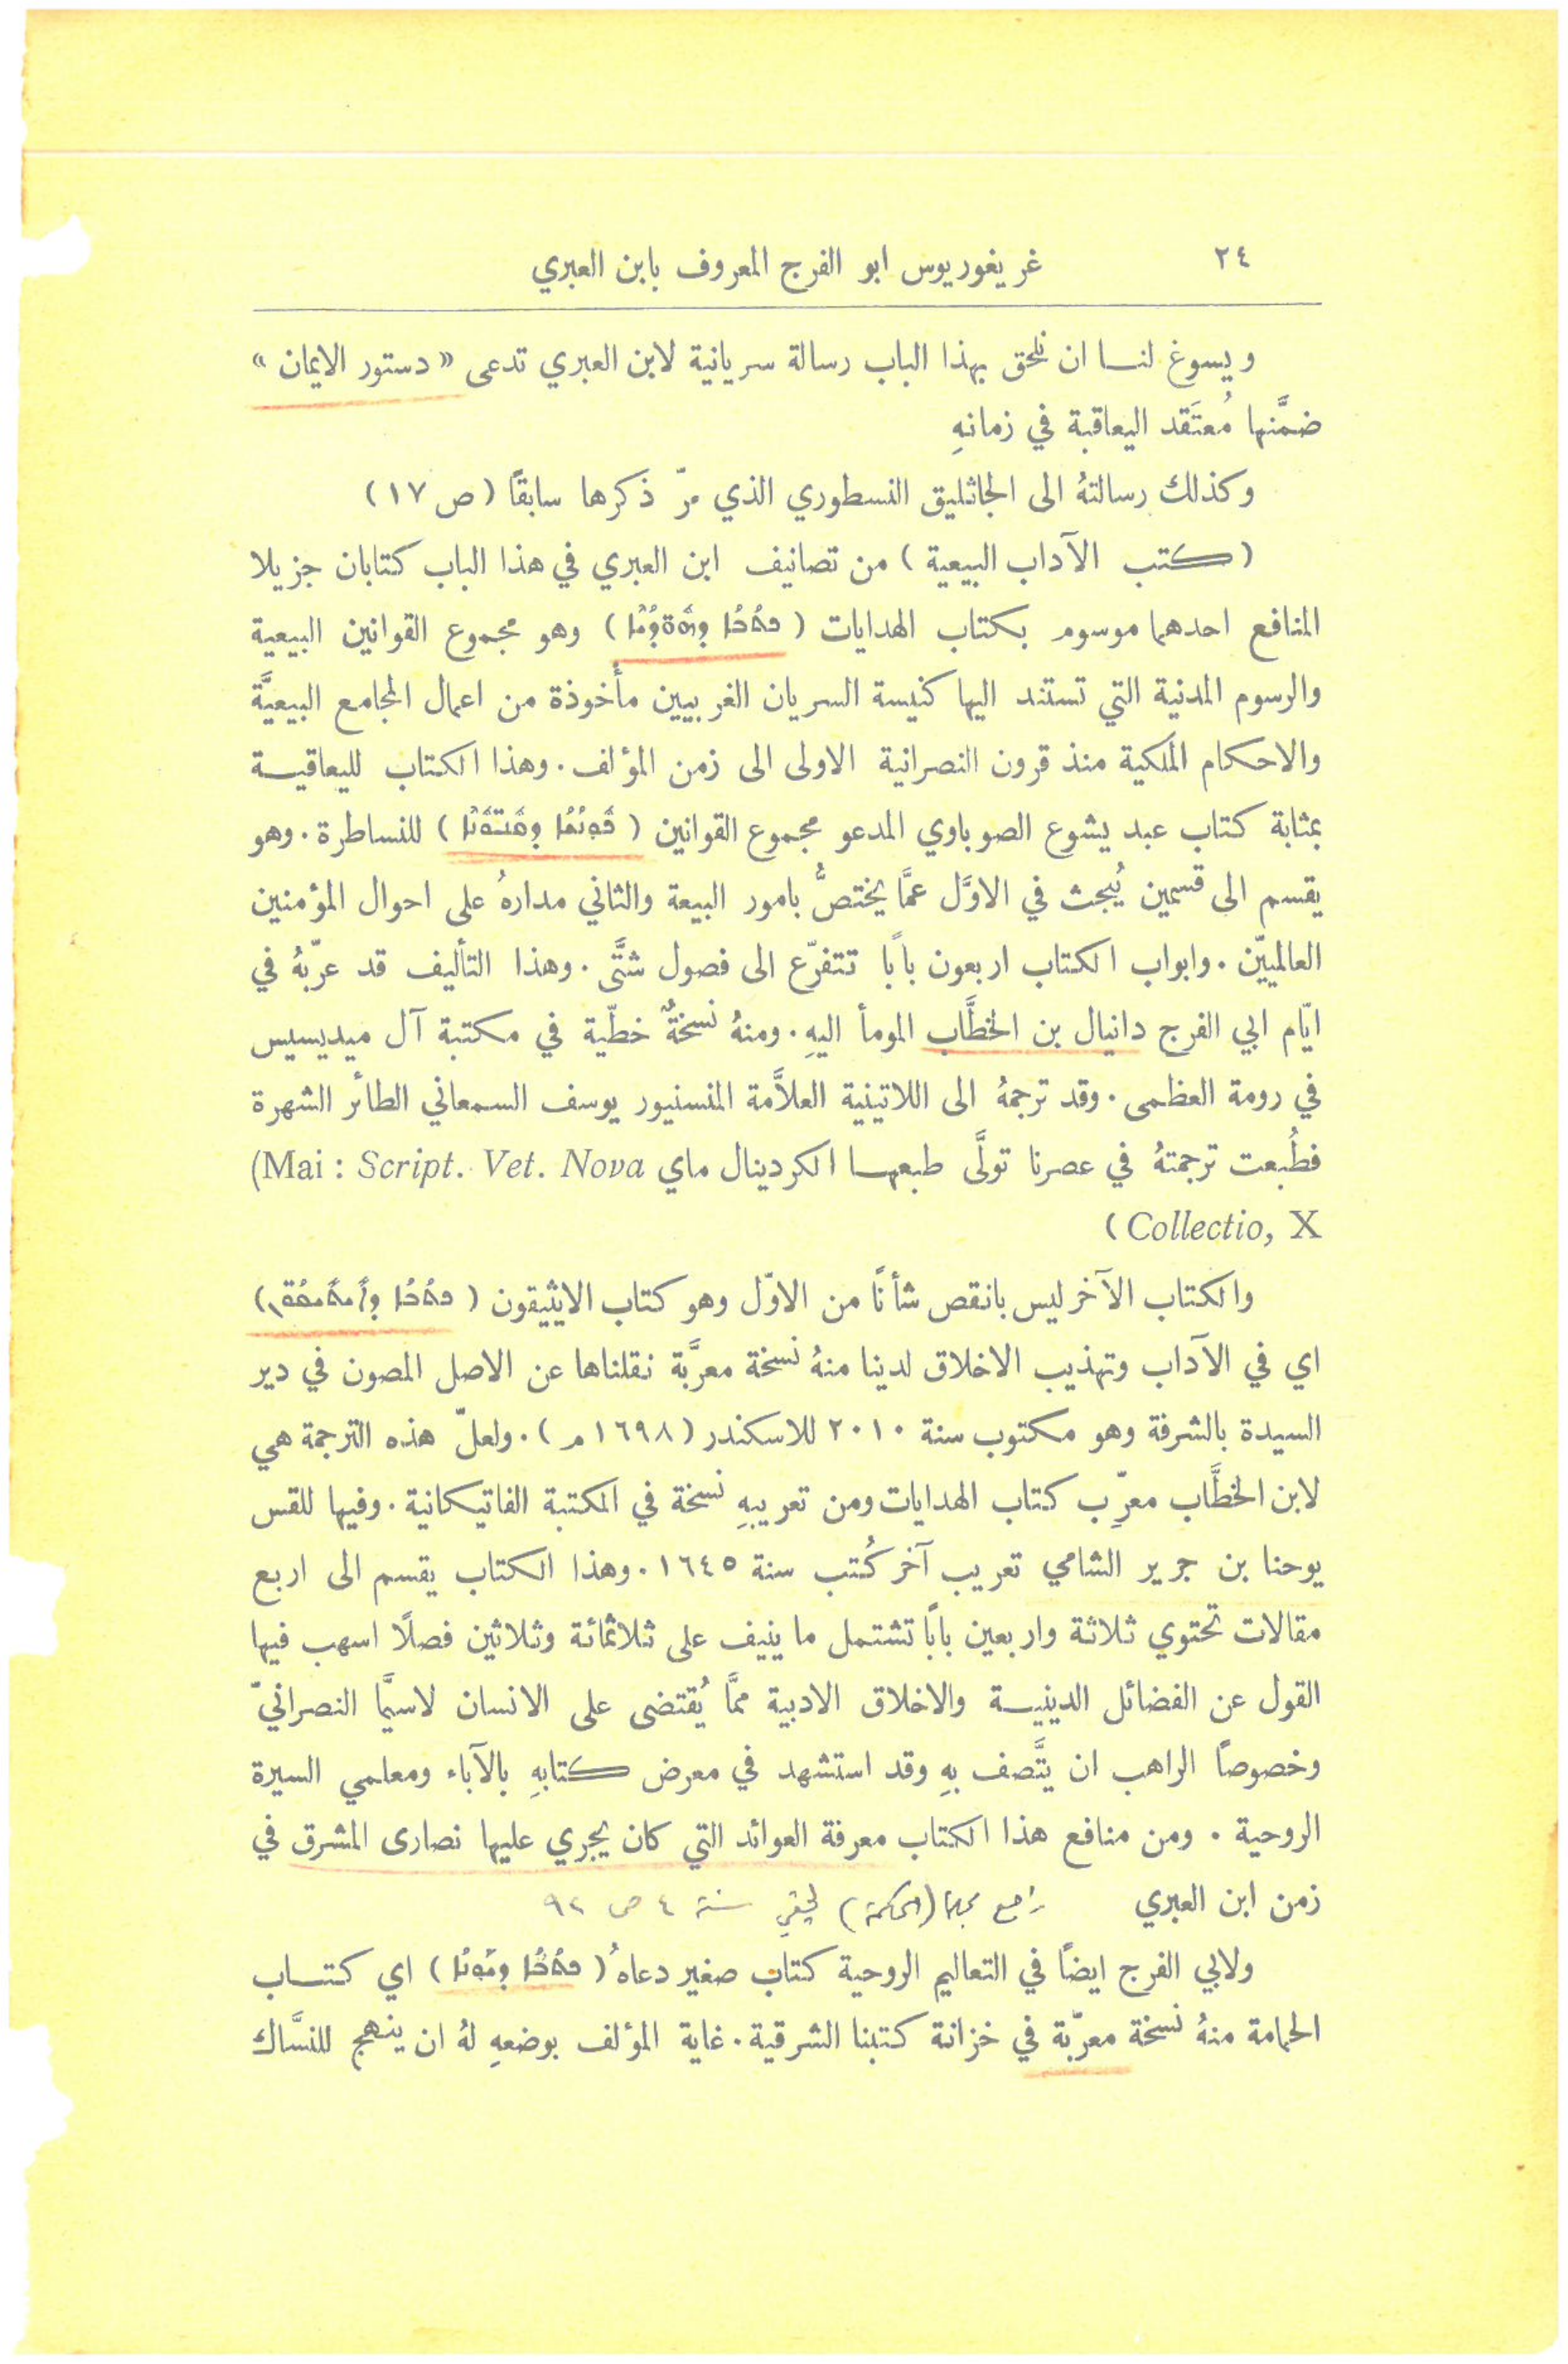 ٢٤ غريغوريوس ابو الفرج المعروف بابن العبري
ويسوغ لنا ان نلحق بهذا الباب رسالة سريانية لابن العبري تدعى « دستور الايمان »
ضمَّنها مُعتَقد اليعاقبة في زمانهِ
وكذلك رسالتهُ الى الجاثليق النسطوري الذي مرّ ذكرها سابقًا ( ص ١٧ )
( كتب الآداب البيعية ) من تصانيف ابن العبري في هذا الباب كتابان جزيلا
المنافع احدهما موسوم بكتاب الهدايات ( ܟܬܳܒܳܐ ܕܗܽܘܕܳܝܶܐ ) وهو مجموع القوانين البيعية
والرسوم المدنية التي تستند اليها كنيسة السريان الغربيين مأخوذة من اعمال المجامع البيعيَّة
والاحكام الملكية منذ قرون النصرانية الاولى الى زمن المؤلف . وهذا الكتاب لليعاقبة
بمثابة كتاب عبد يشوع الصوباوي المدعو مجموع القوانين ( ) للنساطرة . وهو
يقسم الى قسمين يُبحث في الاوَّل عمَّا يختصُّ بامور البيعة والثاني مدارهُ على احوال المؤمنين
العالميّين . وابواب الكتاب اربعون بابًا تتفرّع الى فصول شتَّى . وهذا التأليف قد عرّبهُ في
ايّام ابي الفرج دانيال بن الخطَّاب المومأ اليهِ . ومنهُ نسخةٌ خطّية في مكتبة آل ميديسيس
في رومة العظمى . وقد ترجمهُ الى اللاتينية العلاَّمة المنسنيور يوسف السمعاني الطائر الشهرة
فطُبعت ترجمتهُ في عصرنا تولَّى طبعها الكردينال ماي (Mai : Script. Vet. Nova
Collectio, X )
والكتاب الآخر ليس بانقص شأنًا من الاوّل وهو كتاب الايثيقون ( ܟܬܳܒܳܐ ܕܐܺܝܬܺܝܩܽܘܢ )
اي في الآداب وتهذيب الاخلاق لدينا منهُ نسخة معرَّبة نقلناها عن الاصل المصون في دير
السيدة بالشرفة وهو مكتوب سنة ٢٠١٠ للاسكندر ( ١٦٩٨ م ) . ولعلّ هذه الترجمة هي
لابن الخطَّاب معرِّب كتاب الهدايات ومن تعريبهِ نسخة في المكتبة الفاتيكانية . وفيها للقس
يوحنا بن جرير الشامي تعريب آخر كُتب سنة ١٦٤٥ . وهذا الكتاب يقسم الى اربع
مقالات تحتوي ثلاثة واربعين بابًا تشتمل ما ينيف على ثلاثمائة وثلاثين فصلًا اسهب فيها
القول عن الفضائل الدينية والاخلاق الادبية ممَّا يُقتضى على الانسان لاسيَّما النصرانيّ
وخصوصًا الراهب ان يتَّصف بهِ وقد استشهد في معرض كتابهِ بالآباء ومعلمي السيرة
الروحية . ومن منافع هذا الكتاب معرفة العوائد التي كان يجري عليها نصارى المشرق في
زمن ابن العبري راجع مجلة (الحكمة) سنة ٤ ص ٩٢
ولابي الفرج ايضًا في التعاليم الروحية كتاب صغير دعاهُ ( ܟܬܳܒܳܐ ܕܝܰܘܢܳܐ ) اي كتاب
الحمامة منهُ نسخة معرّبة في خزانة كتبنا الشرقية . غاية المؤلف بوضعهِ لهُ ان ينهج للنسَّاك